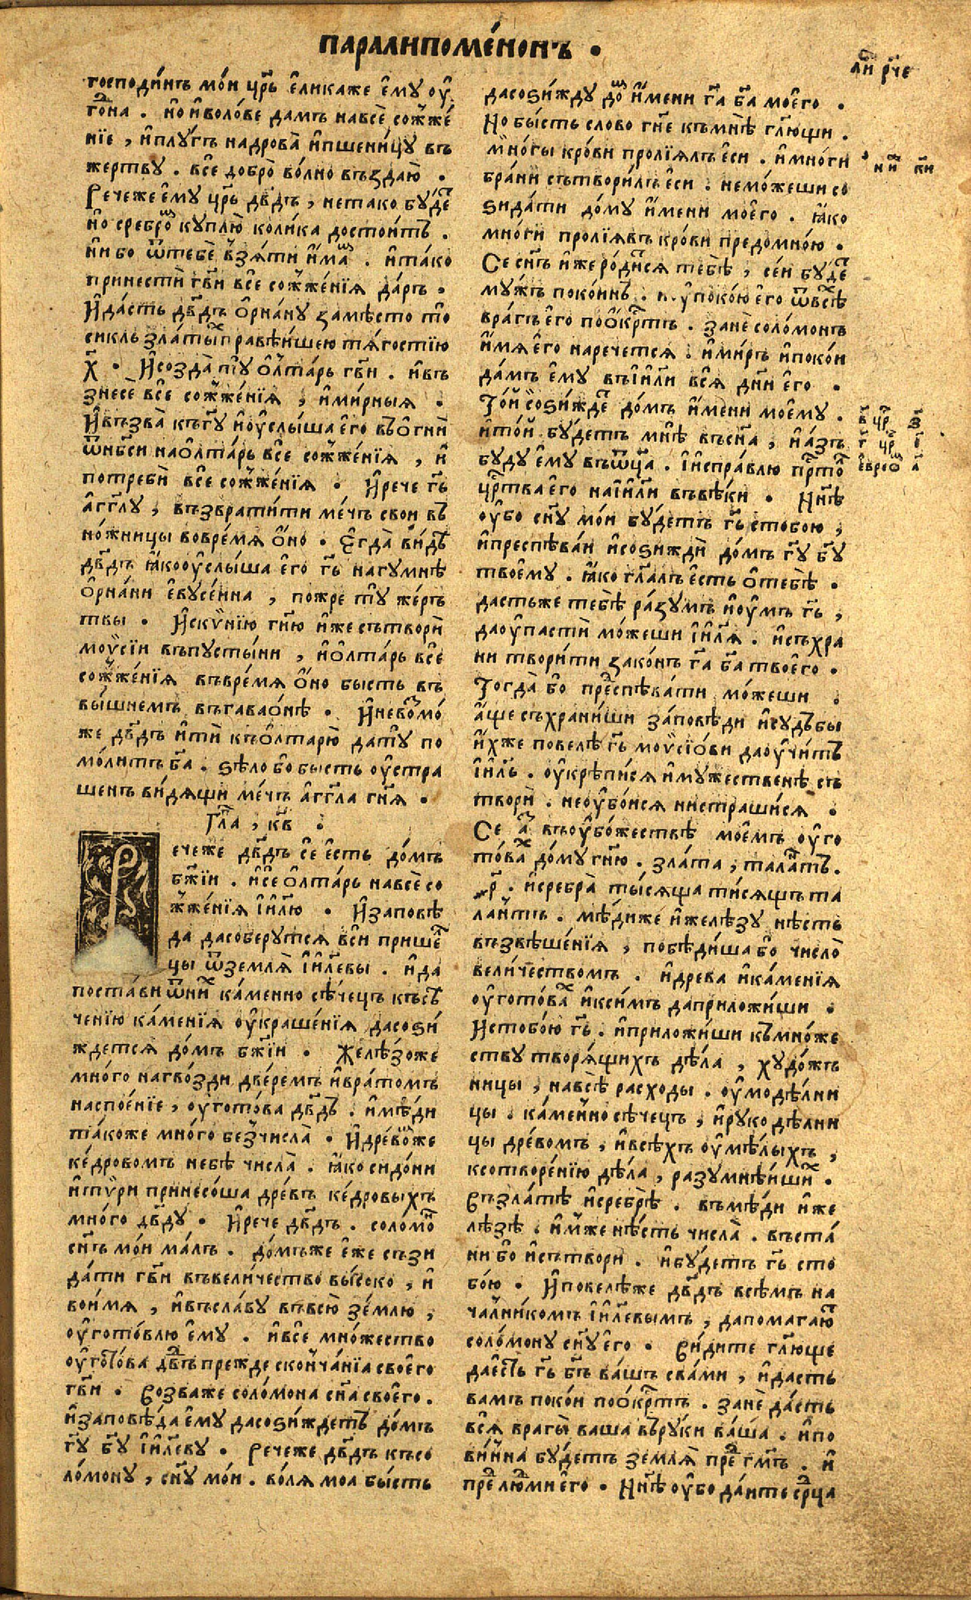 ПАРАЛИПОМЕ́НОНЪ .
господи́нъ мо́и цр҃ь є҆ликаже є҆му ѹ҆
го́на . но̀ и҆воло́ве дамъ навсѐ сожже́
нїе , и҆плу́гъ надрова̀ и҆пшени́цу въ
жертву . всѐ добро̀ во́лно въздаю̀ .
Речеже є҆му цр҃ь дв҃дъ , нетако бу́де
но̀ сребро̀ куплю̀ коли́ка досто́итъ .
ни бо ѿтебѐ взя́ти и҆ма . и҆та́ко
принестѝ гв҃и всѐ сожже́нїя да́ръ .
И҆да́сть дв҃дъ о҆рна́ну замѣсто то
сикль зла́ты пра́вѣишею тя́гостїю
х҃ . И҆созда̀ ту ѻ҆лта́рь гв҃и . и҆въ
знесѐ всѐ сожже́нїя , и҆ми́рныя .
И҆възва̀ къгу҃ и҆ѹ҆слы́ша є҆го въо҆гнѝ
ѿнб҃си наѻ҆лта́рь всѐ сожже́нїя , и҆
потребѝ всѐ сожже́нїя . И҆рече г҃ь
а҆гг҃лу , възврати́ти ме́чъ свои въ
но́жницы вовре́мя о҆но . Є҆гда̀ ви́дѣ
дв҃дъ ꙗ҆коѹ҆слы́ша є҆го г҃ь нагумнѣ
о҆рна́ни є҆вусе́ина , пожре ту же́ръ
твы . И҆ски́нїю гн҃ю и҆же сътворѝ
мои҆сїи въпусты́ни , и҆ѻ҆лта́рь всѐ
сожже́нїя въвре́мя о҆но бысть въ
вы́шнемъ въгаваѻ́нѣ . И҆невъзмо́
же дв҃дъ и҆тѝ къѻ҆лтарю̀ дату по
мо́литъ б҃а . ѕѣло бо бысть ѹ҆стра
шенъ ви́дящи ме́чъ а҆гг҃ла гн҃я .
Гла҃ , кв҃ .
Речеже дв҃дъ сѐ є҆сть до́мъ
бж҃їи . и҆сѐ ѻ҆лта́рь навсѐ со
жже́нїя і҆и҃лю . И҆заповѣ
да дасоберутся всѝ прише
цы ѿземля̀ і҆и҃левы . и҆да
поста́ви ѿни ка́менно сѣчецъ късѣ
ченїю ка́менїя ѹ҆краше́нїя дасоѕи́
ждется до́мъ бж҃їи . Желѣ́зоже
мно́го нагво́зди две́ремъ и҆вра́томъ
наспое́нїе , ѹ҆гото́ва дв҃дъ . и҆мѣди
та́коже мно́го безчисла̀ . И҆древоже
ке́дровомъ небѣ числа̀ . ꙗ҆ко сидо́ни
и҆ти́ри принесо́ша дре́въ ке́дровыхъ
мно́го дв҃ду . И҆рече дв҃дъ . соломо
сн҃ъ мо́и ма́лъ . до́мъже є҆же съзи
да́ти гв҃и въвели́чество высоко , и҆
воимя , и҆въсла́ву въвсю̀ зе́млю ,
ѹ҆гото́влю є҆му . и҆всѐ мно́жество
ѹ҆гото́ва дв҃ъ прежде сконча́нїа своего
гв҃и . Созваже соло́мона сн҃а своего .
и҆заповѣда є҆му дасоѕи́ждетъ до́мъ
г҃у б҃гу і҆и҃леву . Речеже дв҃дъ къ со
ло́мону , сн҃у мо́и . во́ля моа бы́сть
дасоѕи́жду до и҆мени г҃а б҃а моего .
Но бы́сть слово гн҃е къмнѣ гл҃ющи .
мно́гы кро́ви пролїя́лъ є҆си . и҆мно́ги
бра́ни сътвори́лъ є҆си . немо́жеши со
ѕида́ти до́му и҆мени моего . ꙗ҆ко
мно́ги пролїя́въ кро́ви предомно́ю .
Се сн҃ъ и҆же роди́ся тебѣ , се́и буде
му́жъ поко́инъ . и ѹ҆поко́ю є҆го ѿвсѣ
вра́гъ є҆го поокртъ . занѐ соло́монъ
и҆мя є҆го наречется . и҆ми́ръ и҆поко́и
да́мъ є҆му въі҆и҃ли вся̀ дн҃и є҆го .
То́и соѕи́жде до́мъ и҆мени моему .
и҆то́и бу́детъ мнѣ въсн҃а , и҆а́зъ
бу́ду є҆му въѿц҃а . І҆испра́влю прⷭ҇то
цр҃тва є҆го наі҆и҃ли въвѣки . Нн҃ѣ
ѹ҆бо сн҃у мо́и бу́детъ г҃ь стобою ,
и҆преспѣва́и и҆соѕиждѝ до́мъ г҃у б҃у
твоему . ꙗ҆ко гл҃алъ є҆сть о҆тебѣ .
дастьже тебѣ ра́зумъ и҆ѹ҆мъ г҃ь ,
даѹ҆пастѝ мо́жеши і҆и҃ля . и҆съхра
ни твори́ти зако́нъ г҃а б҃а твоего .
Тогда̀ бо преспѣва́ти мо́жеши .
а҆ще съхрани́ши за́повѣди и҆судъбы
и҆хже повелѣ г҃ь мои҆сїо́ви даѹ҆чи́тъ
і҆и҃ль . ѹ҆крѣпи́ся и҆му́жественѣ съ
творѝ . неѹ҆бо́ися нистраши́ся .
Се а҆ въѹ҆бо́жествѣ моемъ ѹ҆го
то́ва до́му гн҃ю . зла́та , таланъ .
р҃ . и҆сребра̀ ты́сяща ти́сящъ та
ла́нтъ . мѣдиже и҆желѣ́зу нѣсть
възвѣше́нїя , побѣди́ша бо число̀
вели́чествомъ . и҆древа и҆ка́менїя
ѹ҆гото́ва и҆ксимъ даприложи́ши .
И҆стобо́ю г҃ь . и҆приложи́ши къмно́же
ству творя́щихъ дѣла , худо́жъ
ницы , навсѣ расхо́ды . ѹ҆модѣ́лни
цы . ка́менно сѣчецъ , и҆руко дѣ́лни
цы дре́вомъ , и҆всѣхъ ѹ҆мѣ́лыхъ ,
ксотворе́нїю дѣла , разумнѣ́иши .
Съзла́тѣ и҆сребрѣ . въмѣди и҆же
лѣ́зѣ . и҆мже нѣсть числа̀ . въста́
ни бо и҆сътвори . и҆бу́детъ г҃ь сто
бо́ю . И҆повелѣже дв҃дъ всѣмъ на
ча́лникомъ і҆и҃левымъ , дапомагаю
соло́мону сн҃у є҆го . Ви́дите гл҃юще
даесть г҃ь б҃ъ ва́шъ сва́ми , и҆да́сть
вамъ поко́и поокртъ . занѐ да́сть
вся̀ врагы̀ ваша въруки ва́ша . и҆по
ви́нна бу́детъ земля̀ пре гм҃ъ . и҆
пре людми є҆го . Нн҃ѣ ѹ҆бо да́ите срⷣца